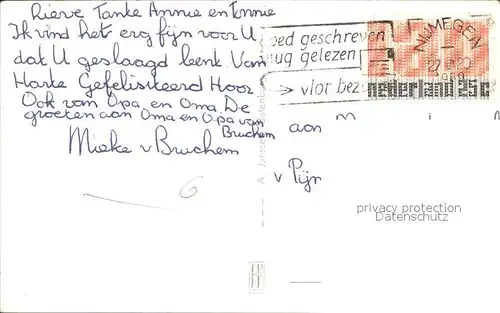 Lieve Tante Annie en Tonnie
Ik vind het erg fijn voor U
dat U geslaagd bent Van
Harte Gefelisiteerd Hoor
Ook van Opa en Oma. De
groeten aan Oma en Opa van
Bruchem
Mieke v Bruchem
oed geschreven
ug gelezen
→ vlot bez
NIJMEGEN
nederland 25c
aan
v Pijn
6
A. Jansse
privacy protection
Datenschutz